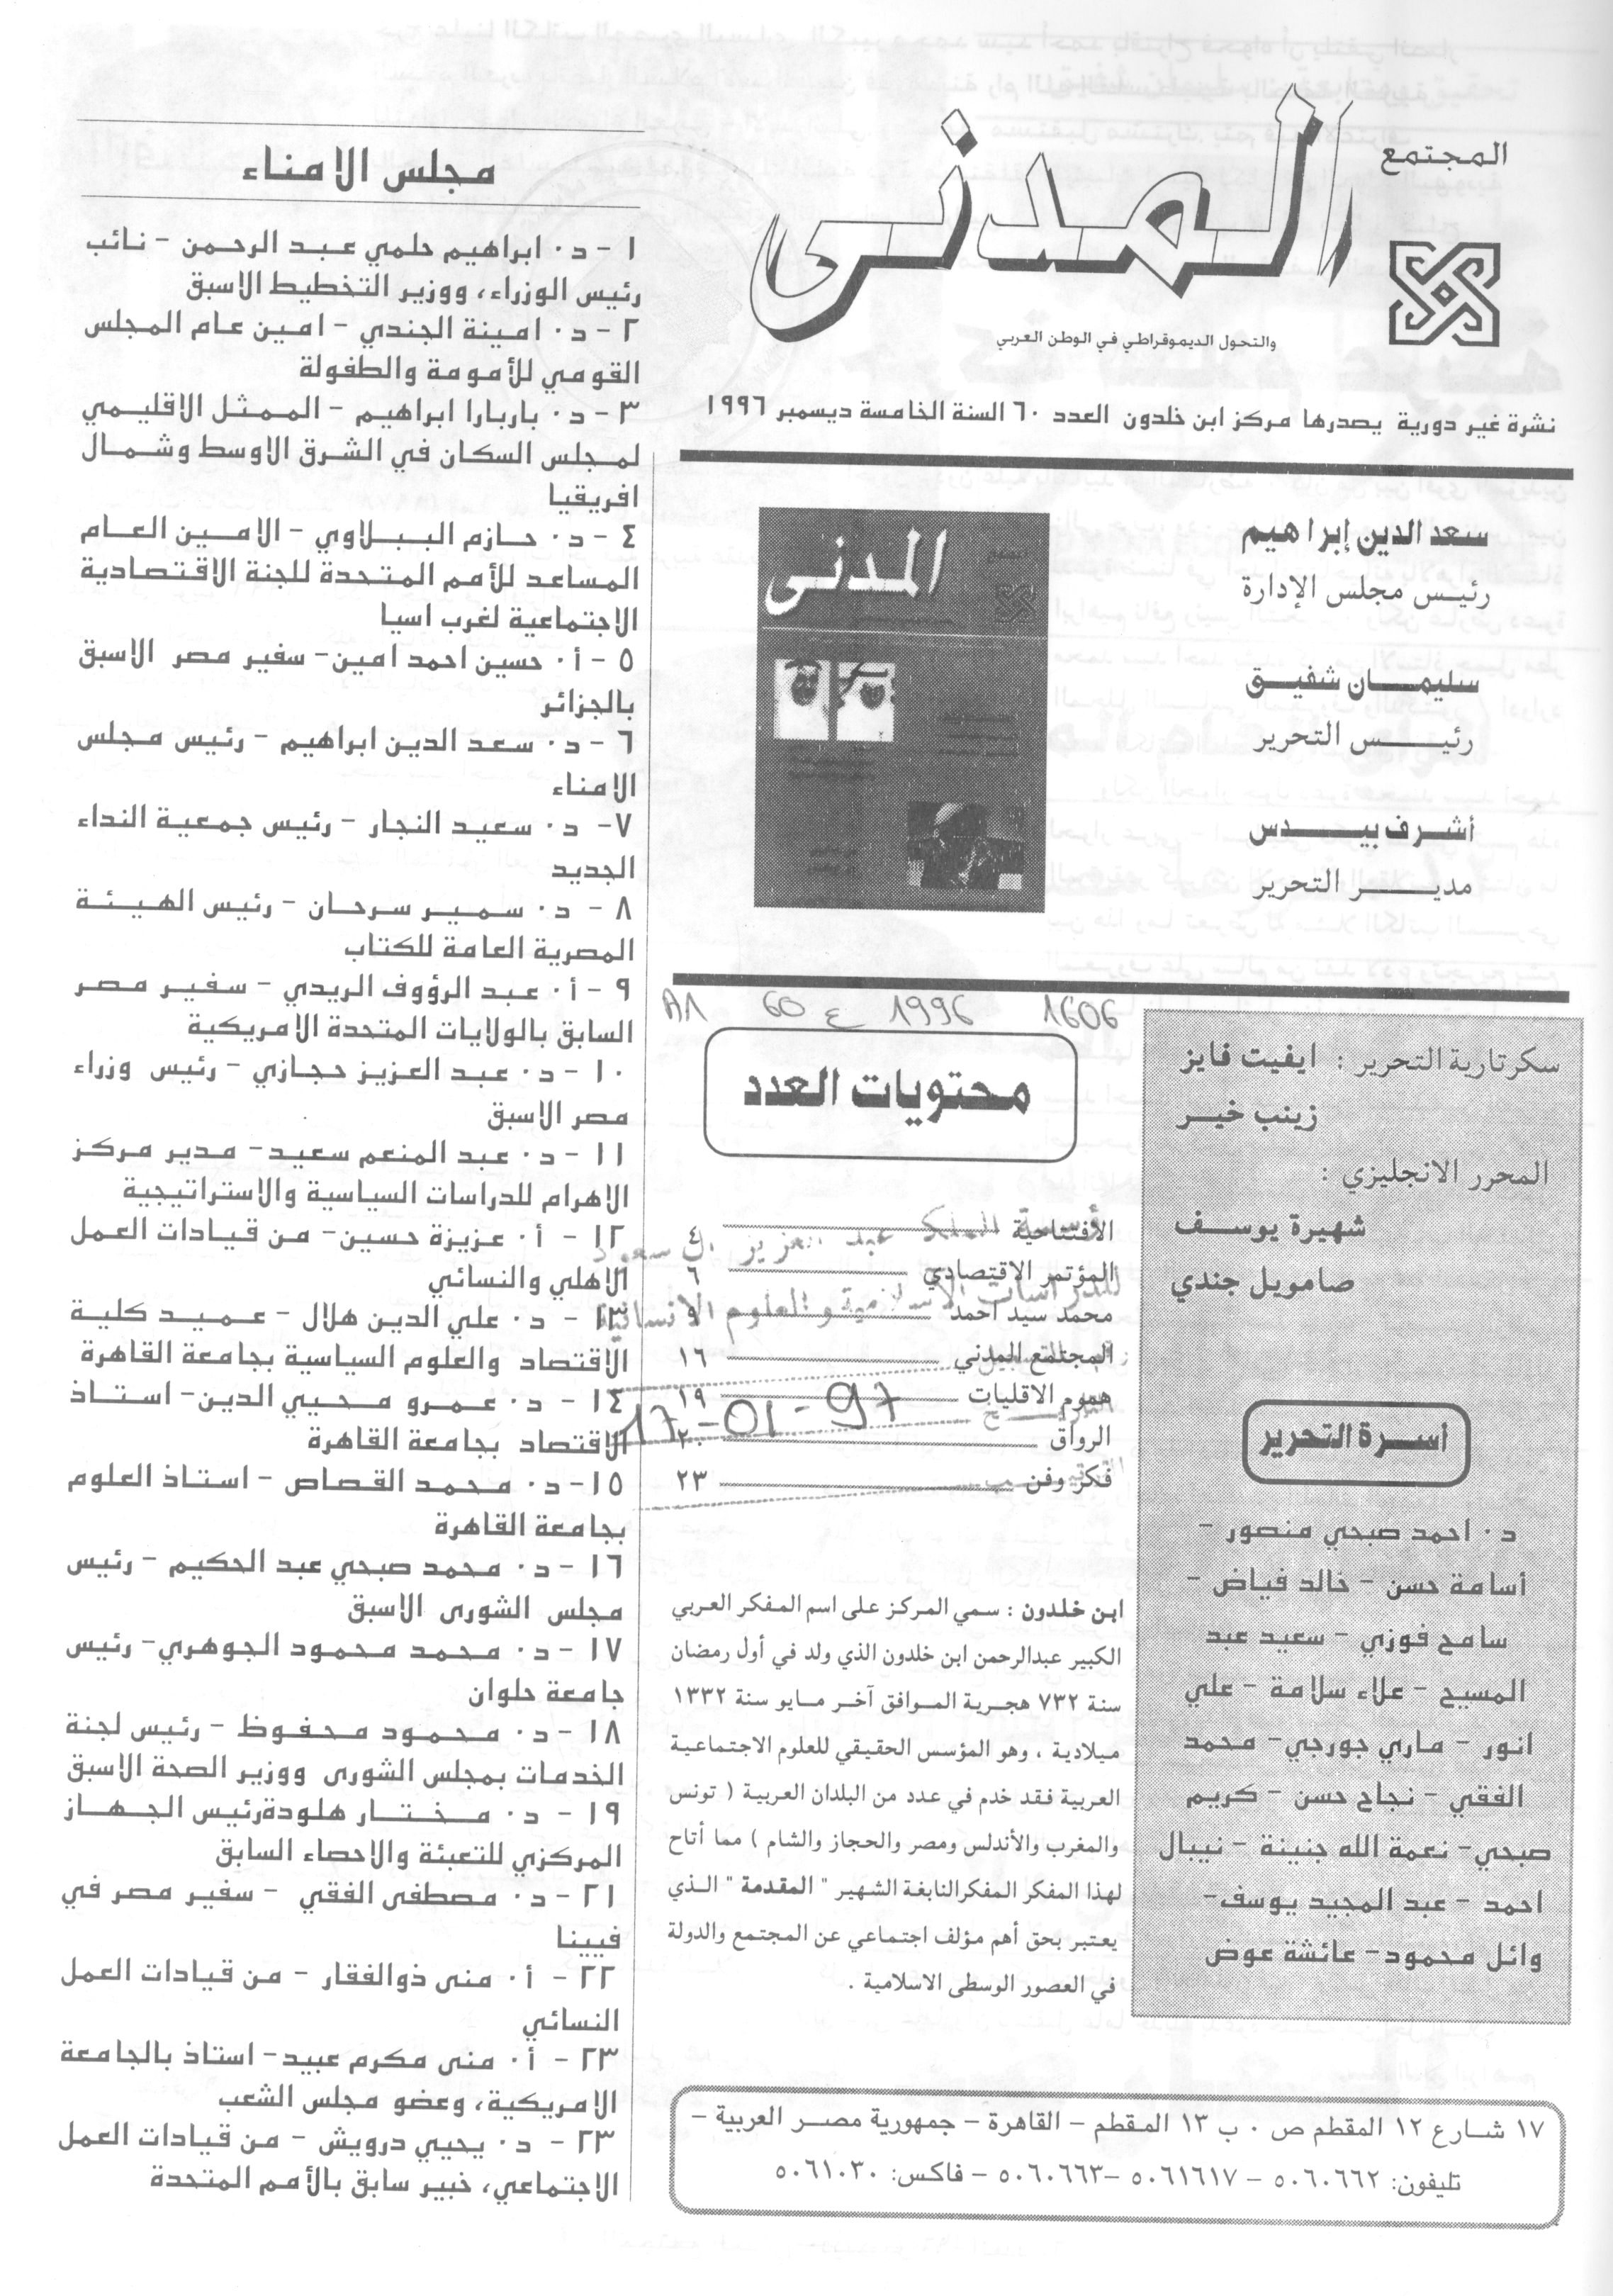 المجتمع
المدنى
والتحول الديموقراطي في الوطن العربي
نشرة غير دورية يصدرها مركز ابن خلدون العدد ٦٠ السنة الخامسة ديسمبر ١٩٩٦
سعد الدين إبراهيم
رئيس مجلس الإدارة
سليمان شفيق
رئيس التحرير
أشرف بيدس
مدير التحرير
المدنى
سكرتارية التحرير : ايفيت فايز
زينب خير
المحرر الانجليزي :
شهيرة يوسف
صامويل جندي
أسرة التحرير
د٠ احمد صبحي منصور -
أسامة حسن - خالد فياض -
سامح فوزي - سعيد عبد
المسيح - علاء سلامة - علي
انور - ماري جورجي- محمد
الفقي - نجاح حسن - كريم
صبحي- نعمة الله جنينة - نيبال
احمد - عبد المجيد يوسف-
وائل محمود- عائشة عوض
A1 60 ع 1996 1606
محتويات العدد
الافتتاحية ٤
المؤتمر الاقتصادي ٦
محمد سيد احمد ٩
المجتمع المدني ١٦
هموم الاقليات ١٩
الرواق ٢٠
فكر وفن ٢٣
مؤسسة الملك عبد العزيز آل سعود
للدراسات الاسلامية والعلوم الانسانية
17-01-97
ابن خلدون : سمي المركز على اسم المفكر العربي
الكبير عبدالرحمن ابن خلدون الذي ولد في أول رمضان
سنة ٧٣٢ هجرية الموافق آخر مايو سنة ١٣٣٢
ميلادية ، وهو المؤسس الحقيقي للعلوم الاجتماعية
العربية فقد خدم في عدد من البلدان العربية ( تونس
والمغرب والأندلس ومصر والحجاز والشام ) مما أتاح
لهذا المفكر المفكرالنابغة الشهير " المقدمة " الذي
يعتبر بحق أهم مؤلف اجتماعي عن المجتمع والدولة
في العصور الوسطى الاسلامية .
١٧ شارع ١٢ المقطم ص ٠ ب ١٣ المقطم - القاهرة - جمهورية مصر العربية -
تليفون: ٥٠٦٠٦٦٢ - ٥٠٦١٦١٧ -٥٠٦٠٦٦٣ - فاكس: ٥٠٦١٠٣٠
مجلس الامناء
١ - د٠ ابراهيم حلمي عبد الرحمن - نائب
رئيس الوزراء، ووزير التخطيط الاسبق
٢ - د٠ امينة الجندي - امين عام المجلس
القومي للأمومة والطفولة
٣ - د٠ باربارا ابراهيم - الممثل الاقليمي
لمجلس السكان في الشرق الاوسط وشمال
افريقيا
٤ - د٠ حازم الببلاوي - الامين العام
المساعد للأمم المتحدة للجنة الاقتصادية
الاجتماعية لغرب اسيا
٥ - أ٠ حسين احمد امين- سفير مصر الاسبق
بالجزائر
٦ - د٠ سعد الدين ابراهيم - رئيس مجلس
الامناء
٧- د٠ سعيد النجار - رئيس جمعية النداء
الجديد
٨ - د٠ سمير سرحان - رئيس الهيئة
المصرية العامة للكتاب
٩ - أ٠ عبد الرؤوف الريدي - سفير مصر
السابق بالولايات المتحدة الامريكية
١٠ - د٠ عبد العزيز حجازي - رئيس وزراء
مصر الاسبق
١١ - د٠ عبد المنعم سعيد- مدير مركز
الاهرام للدراسات السياسية والاستراتيجية
١٢ - أ٠ عزيزة حسين- من قيادات العمل
الاهلي والنسائي
١٣ - د٠ علي الدين هلال - عميد كلية
الاقتصاد والعلوم السياسية بجامعة القاهرة
١٤ - د٠ عمرو محيي الدين- استاذ
الاقتصاد بجامعة القاهرة
١٥ - د٠ محمد القصاص - استاذ العلوم
بجامعة القاهرة
١٦ - د٠ محمد صبحي عبد الحكيم - رئيس
مجلس الشورى الاسبق
١٧ - د٠ محمد محمود الجوهري- رئيس
جامعة حلوان
١٨ - د٠ محمود محفوظ - رئيس لجنة
الخدمات بمجلس الشورى ووزير الصحة الاسبق
١٩ - د٠ مختار هلودةرئيس الجهاز
المركزي للتعبئة والاحصاء السابق
٢١ - د٠ مصطفى الفقي - سفير مصر في
فيينا
٢٢ - أ٠ منى ذوالفقار - من قيادات العمل
النسائي
٢٣ - أ٠ منى مكرم عبيد- استاذ بالجامعة
الامريكية، وعضو مجلس الشعب
٢٣ - د٠ يحيي درويش - من قيادات العمل
الاجتماعي، خبير سابق بالأمم المتحدة